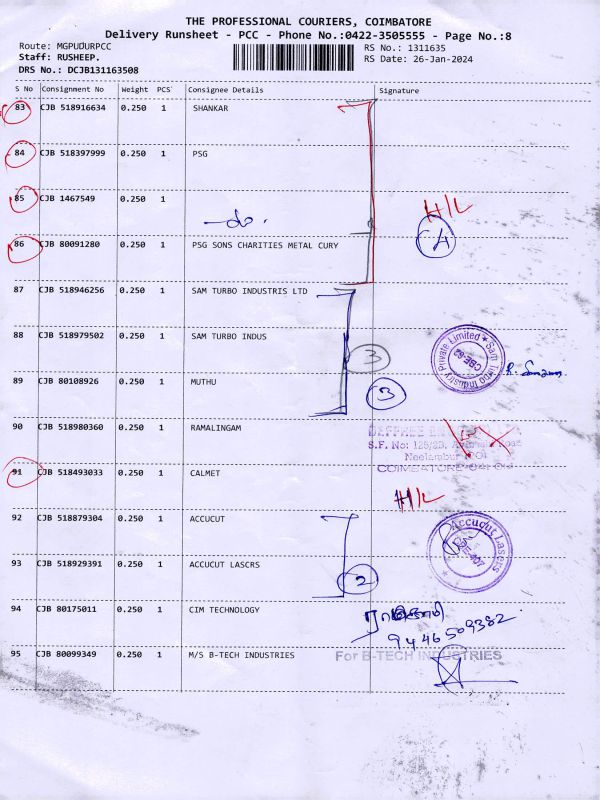 THE PROFESSIONAL COURIERS, COIMBATORE
Delivery Runsheet - PCC - Phone No.:0422-3505555 - Page No.:8
Route: MGPUDURPCC
RS No.: 1311635
Staff: RUSHEEP.
RS Date: 26-Jan-2024
DRS No.: DCJB131163508
S No Consignment No Weight PCS Consignee Details Signature
83 CJB 518916634 0.250 1 SHANKAR
84 CJB 518397999 0.250 1 PSG
85 CJB 1467549 0.250 1
-do.
H/L
4
86 CJB 80091280 0.250 1 PSG SONS CHARITIES METAL CURY
87 CJB 518946256 0.250 1 SAM TURBO INDUSTRIS LTD
88 CJB 518979502 0.250 1 SAM TURBO INDUS
3
Sam Turbo Industry Private Limited
CBE-62
89 CJB 80108926 0.250 1 MUTHU
3
90 CJB 518980360 0.250 1 RAMALINGAM
S.F. No: 125/2B, Road
Neelambur
COIMBATORE
91 CJB 518493033 0.250 1 CALMET
H/L
92 CJB 518879304 0.250 1 ACCUCUT
Accucut Lasers
93 CJB 518929391 0.250 1 ACCUCUT LASCRS
2
94 CJB 80175011 0.250 1 CIM TECHNOLOGY
9446509382
95 CJB 80099349 0.250 1 M/S B-TECH INDUSTRIES
For B-TECH INDUSTRIES